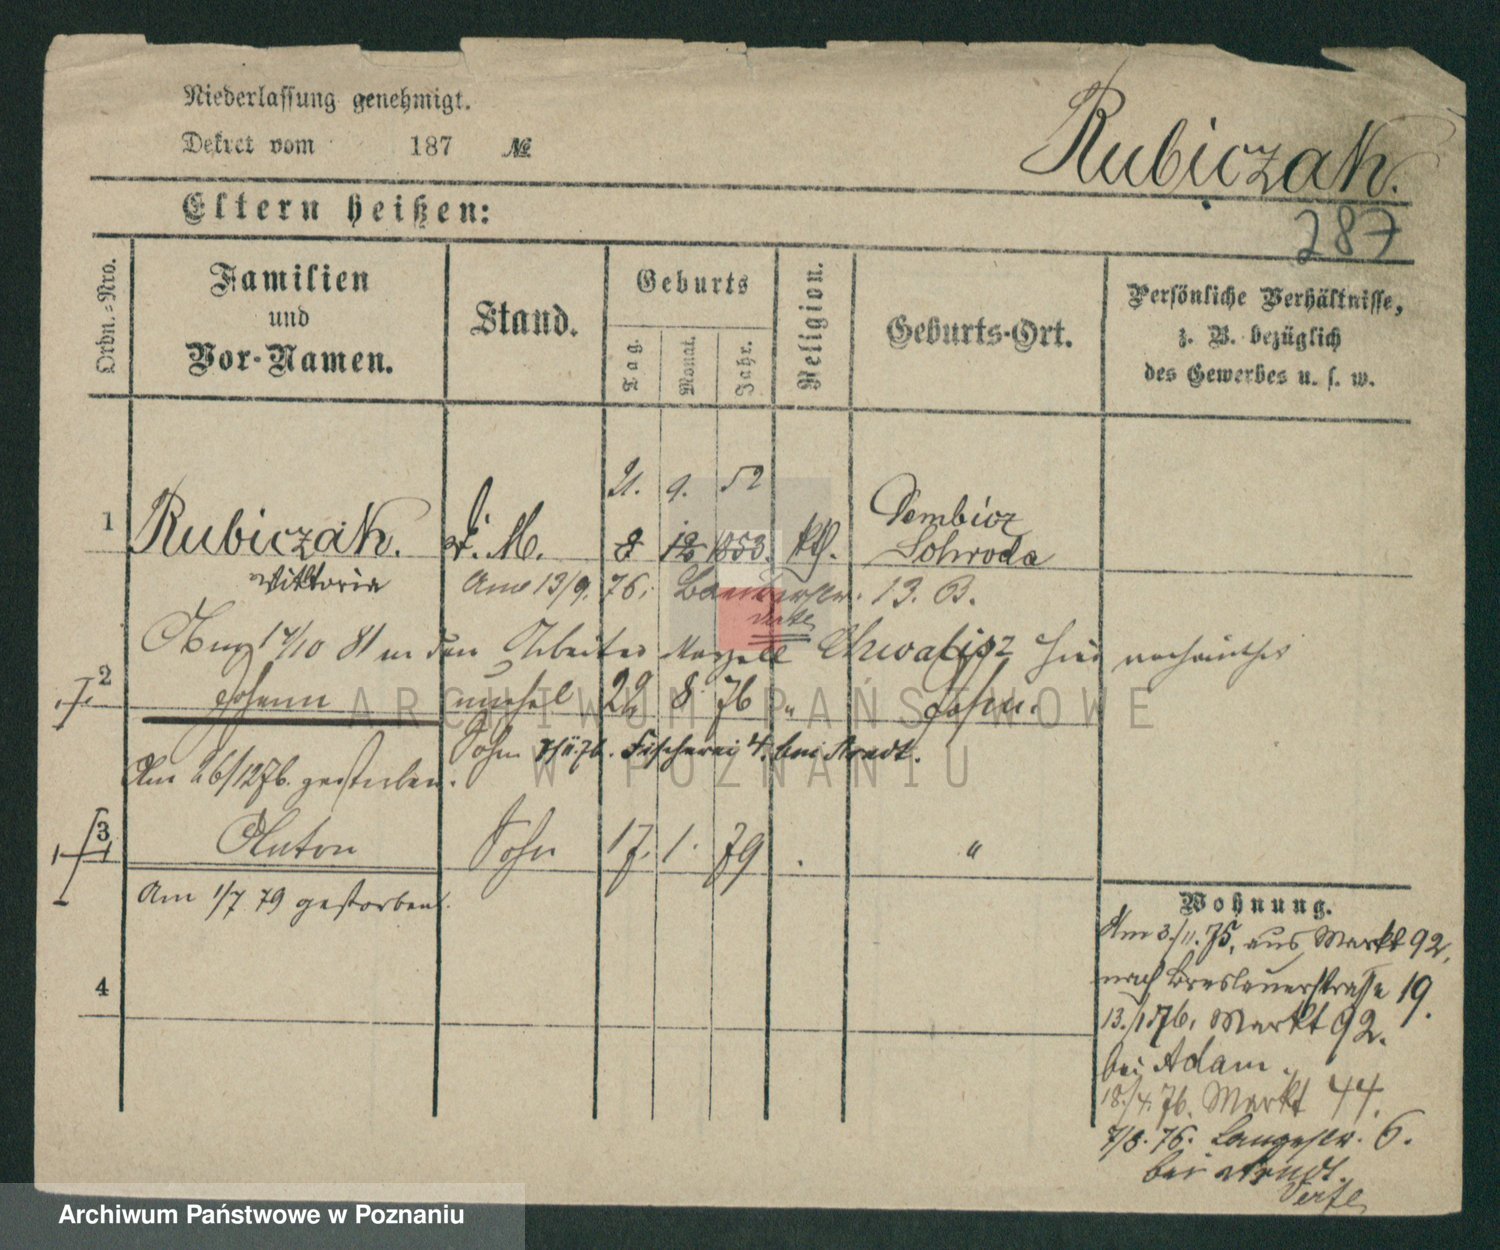 Niederlassung genehmigt.
Dekret vom 187 №
Rubiczak.
Eltern heißen:
287
Ordn.-Nro.
Familien
und
Vor-Namen.
Stand.
Geburts
Tag.
Monat.
Jahr.
Religion.
Geburts-Ort.
Persönliche Verhältnisse,
z. B. bezüglich
des Gewerbes u. s. w.
21. 9. 52
1 Rubiczak. d. M. 8 12 1853. kth. Dembicz
Schroda
Viktoria Am 13/9. 76. 13. B.
14/10 81 Arbeiter Chwalisz hier
2 Johann unehel 22 8 76 "
Sohn 7/11.76. Fischerei 4. bei Arndt.
Am 26/1276. gestorben.
3 Anton Sohn 17. 1. 79 "
Am 1/7 79 gestorben.
Wohnung.
Am 3./11. 75, aus Markt 92,
nach Breslauerstrasse 19.
13./1.76, Markt 92.
bei Adam.
18./4. 76. Markt 44.
7/8. 76. Langestr. 6.
bei Arndt.
4
ARCHIWUM PAŃSTWOWE
W POZNANIU
Archiwum Państwowe w Poznaniu